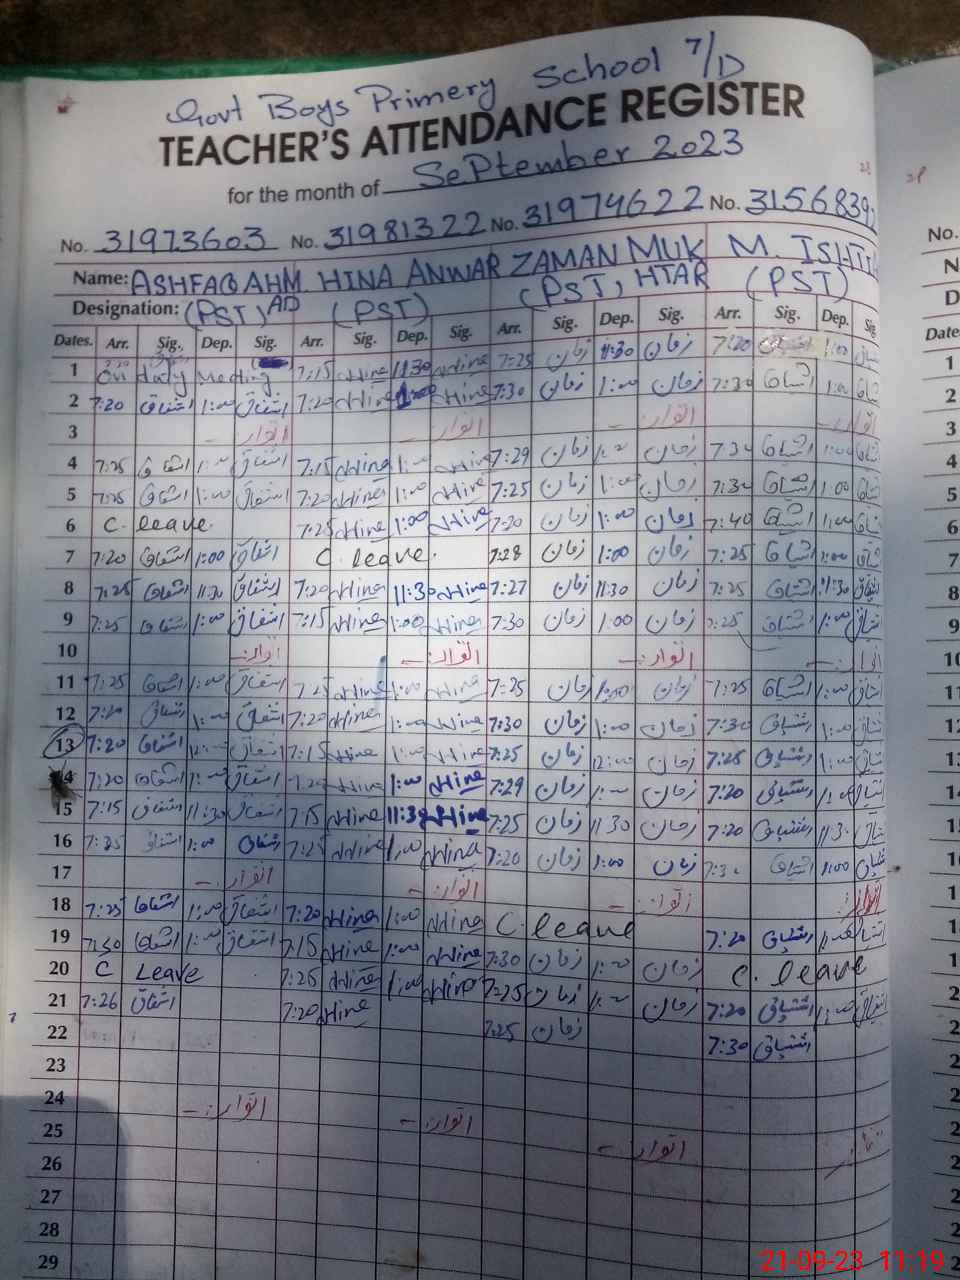 Govt Boys Primery School 7/D
TEACHER'S ATTENDANCE REGISTER
for the month of September 2023
No. 31973603 No. 31981322 No. 31974622 No. 31568392
Name: ASHFAQ AHM HINA ANWAR ZAMAN MUK M. ISHTI
Designation: (PST), AD (PST) (PST, HTAR (PST)
Dates. Arr. Sig. Dep. Sig. Arr. Sig. Dep. Sig. Arr. Sig. Dep. Sig. Arr. Sig. Dep. Sig
1 On duty Meeting 7:15 Hina 11:30 Hina 7:25 زمان 11:30 زمان 7:20 1:00
2 7:20 اشفاق 1:00 اشفاق 7:20 Hina 1:00 Hina 7:30 زمان 1:00 زمان 7:30 اشتیاق 1:00
3 اتوار:- اتوار:- اتوار:- اتوار:-
4 7:25 اشفاق 1:00 اشفاق 7:15 Hina 1:00 Hina 7:29 زمان 1:00 زمان 7:30 اشتیاق 1:00
5 7:25 اشفاق 1:00 اشفاق 7:20 Hina 1:00 Hina 7:25 زمان 1:00 زمان 7:30 اشتیاق 1:00
6 C. leave 7:25 Hina 1:00 Hina 7:20 زمان 1:00 زمان 7:40 اشتیاق 1:00
7 7:20 اشفاق 1:00 اشفاق C. leave. 7:28 زمان 1:00 زمان 7:25 اشتیاق 1:00
8 7:25 اشفاق 11:30 اشفاق 7:20 Hina 11:30 Hina 7:27 زمان 11:30 زمان 7:25 اشتیاق 11:30
9 7:25 اشفاق 1:00 اشفاق 7:15 Hina 1:00 Hina 7:30 زمان 1:00 زمان 7:25 اشتیاق 1:00
10 اتوار:- اتوار:- اتوار:-
11 7:25 اشفاق 1:00 اشفاق 7:25 Hina 1:00 Hina 7:25 زمان 1:00 زمان 7:25 اشتیاق 1:00
12 7:20 اشفاق 1:00 اشفاق 7:20 Hina 1:00 Hina 7:30 زمان 1:00 زمان 7:30 اشتیاق 1:00
13 7:20 اشفاق 12:00 اشفاق 7:15 Hina 1:00 Hina 7:25 زمان 12:00 زمان 7:25 اشتیاق 1:00
7:20 اشفاق 1:00 اشفاق 7:20 Hina 1:00 Hina 7:29 زمان 1:00 زمان 7:20 اشتیاق 1:00
15 7:15 اشفاق 11:30 اشفاق 7:15 Hina 11:30 Hina 7:25 زمان 11:30 زمان 7:20 اشتیاق 11:30
16 7:25 اشفاق 1:00 اشفاق 7:25 Hina 1:00 Hina 7:20 زمان 1:00 زمان اشتیاق 1:00
17 اتوار:- اتوار:- اتوار:- اتوار:
18 7:25 اشفاق 1:00 اشفاق 7:20 Hina 1:00 Hina C. leave 7:20 اشتیاق 1:00
19 7:30 اشفاق 1:00 اشفاق 7:15 Hina 1:00 Hina 7:30 زمان 1:00 زمان C. leave
20 C Leave 7:25 Hina 1:00 Hina 7:25 زمان 1:00 زمان 7:20 اشتیاق 1:00
21 7:26 اشفاق 7:20 Hina 7:25 زمان 7:30 اشتیاق
22
23
24 اتوار:- اتوار:- اتوار:-
25
26
27
28
29
21-09-23 11:19